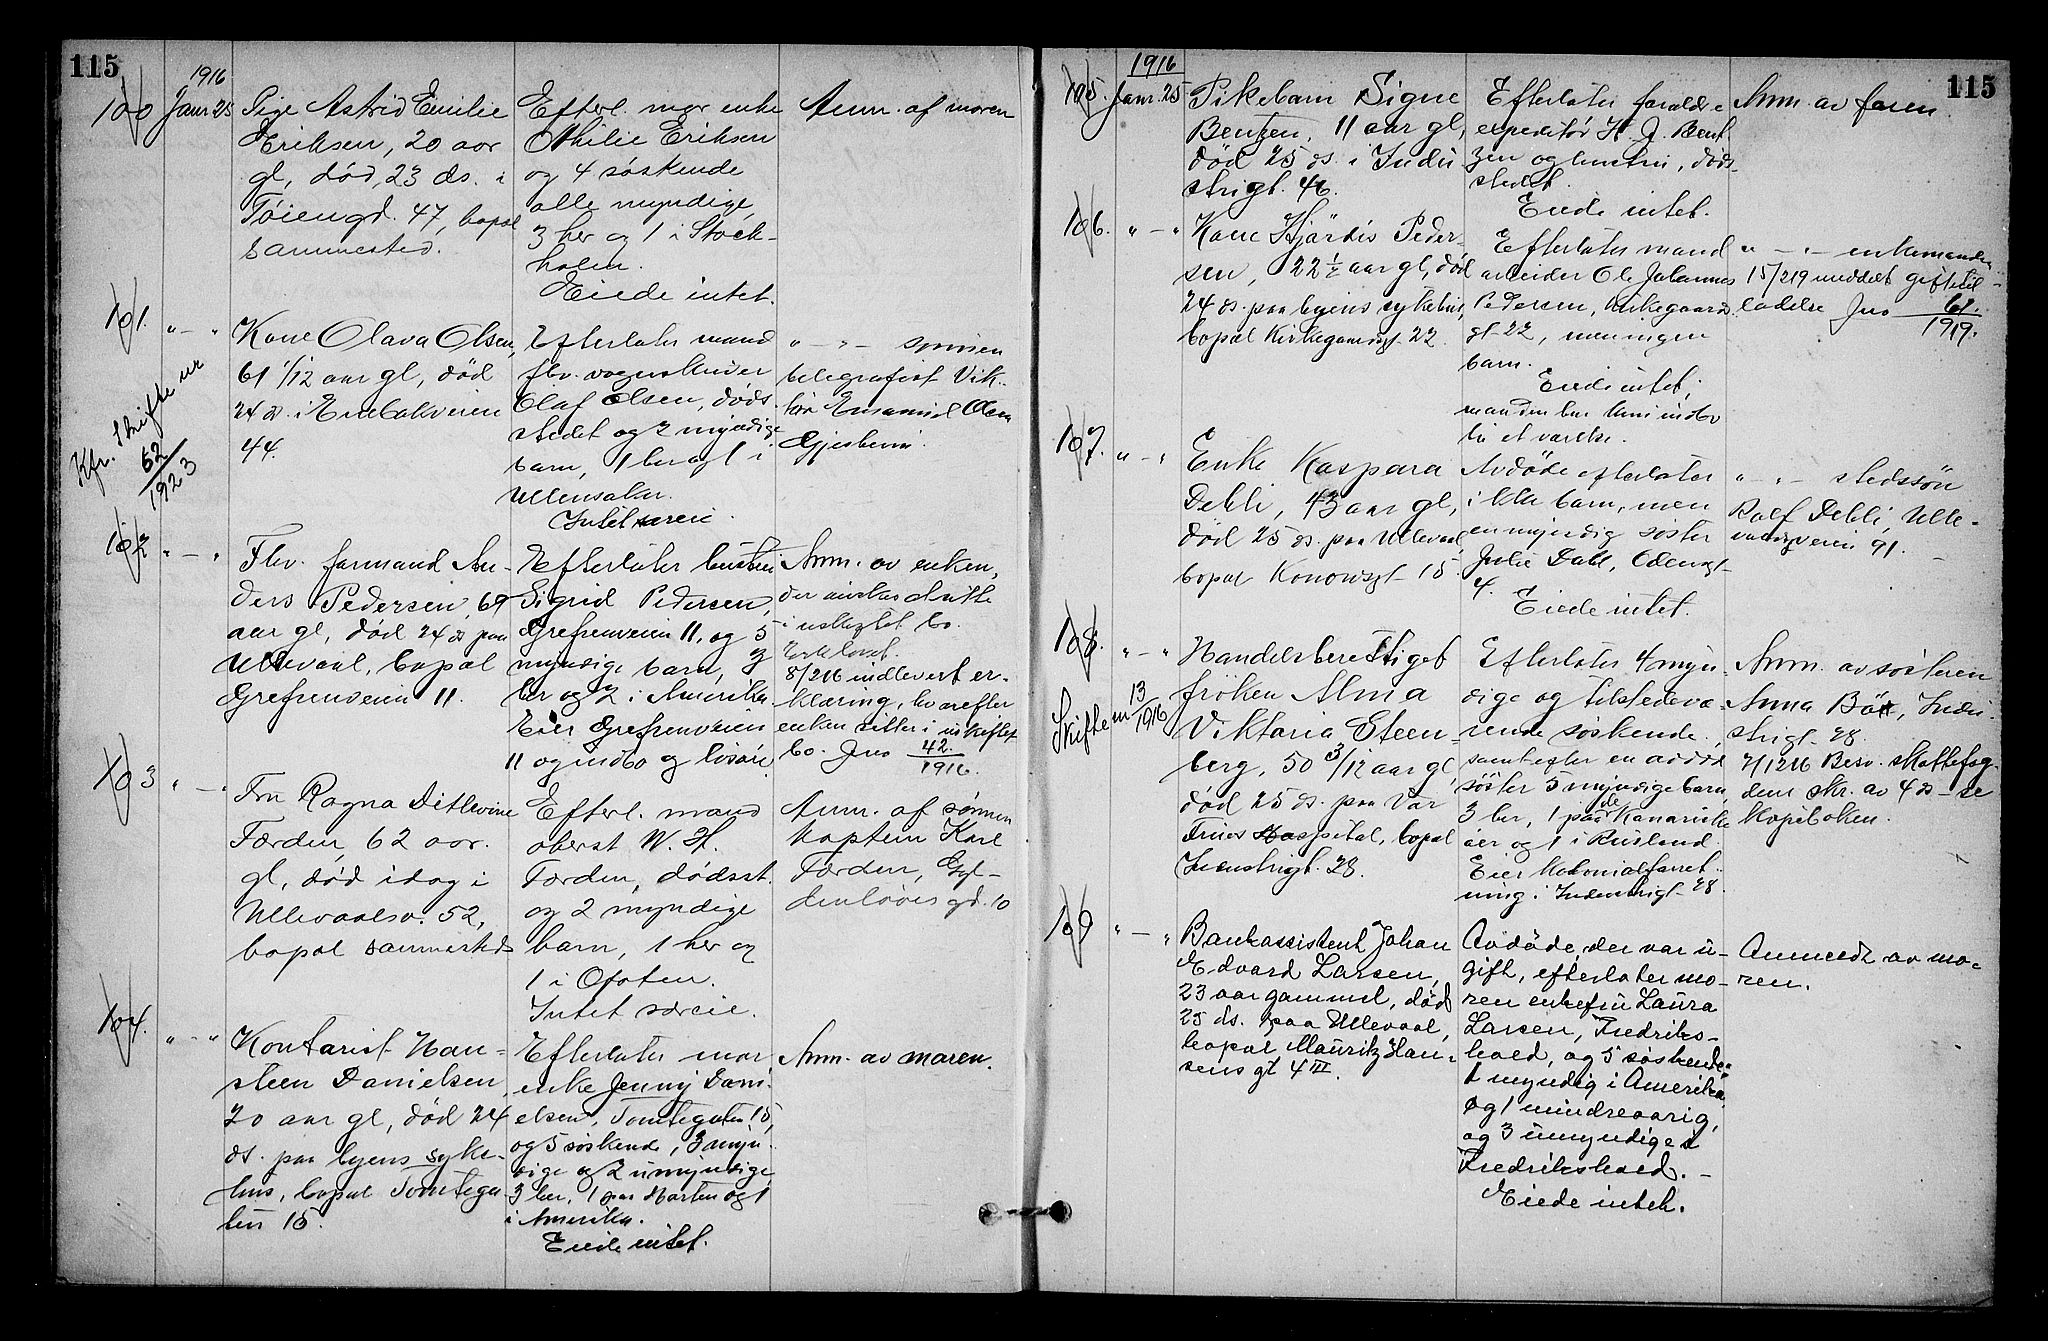 115
1916
100 Janr. 25
Pige Astrid Emilie
Eriksen, 20 aar
gl, død 23 ds. i
Tøiengd. 47, bopæl
sammested.
Efterl. mor enke
Othilie Eriksen
og 4 søskende
alle myndige
3 her og 1 i Stock-
holm.
Eiede intet.
Anm. af moren
101. " — "
Kfr. Skifte nr
62
1923
Kone Olava Olsen,
61 1/12 aar gl, død
24 ds. i Enebakveien
44.
Efterlater mand
fhv. vognskriver
Olaf Olsen, døds-
stedet og 2 myndige
barn, 1 her og 1 i
Ullensaker.
Intet særeie.
" — " — sønnen
telegrafist Vik-
tor Emanuel Olsen
Gjesheim.
102 " — "
Fhv. formand An-
ders Pedersen, 69
aar gl, død 24 ds paa
Ullevaal, bopæl
Grefsenveien 11.
Efterlater hustru
Sigrid Pedersen,
Grefsenveien 11, og 5
myndige barn, 3
her og 2 i Amerika
Eier Grefsenveien
11 og indbo og løsøre
Anm. av enken,
der ønskes sitte
i uskiftet bo.
8/216 indlevert er-
klæring, hvorefter
enken sitter i uskiftet
bo. Jno 42.
1916.
103 " — "
Fru Ragna Ditlevine
Færden, 62 aar.
gl, død idag i
Ullevaalsv. 52,
bopæl sammesteds
Efterl. mand
oberst W. H.
Færden, dødsst.
og 2 myndige
barn, 1 her og
1 i Ofoten.
Intet særeie.
Anm. af sønnen
kaptein Karl
Færden, Gyl-
denløves gd. 10
104. " — "
Kontorist Han-
steen Danielsen
20 aar gl, død 24
ds. paa byens syke-
hus, bopæl Tomtega-
ten 15.
Efterlater mor
enke Jenny Dani-
elsen, Tomtegaten 15,
og 5 søskende, 3 myn-
dige og 2 umyndige
3 her, 1 paa Horten og 1
i Amerika.
Eiede intet.
Anm. av moren.
115
1916
105. Janr. 25
Pikebarn Signe
Bentzen, 11 aar gl,
død 25 ds. i Indu
strigt. 46.
Efterlater forældre
expeditør H. J. Bent
zen og hustru, døds-
stedet.
Eiede intet.
Anm. av faren
106. " — "
Kone Hjördis Peder-
sen, 22 1/2 aar gl, død
24 ds. paa byens sykehus,
bopæl Kirkegaardsgt 22.
Efterlater mand
arbeider Ole Johannes
Pedersen, Kirkegaards-
gt 22, men ingen
barn.
Eiede intet,
manden har kun indbo
til et værelse.
" — " — enkemanden
15/219 meddelt giftetil-
ladelse Jno 61.
1919.
107. " — "
Enke Kaspara
Dehli, 43 aar gl,
død 25 ds. paa Ullevaal,
bopæl Konowsgt 15.
Avdöde efterlater
ikke barn, men
en myndig søster
Julie Dahl, Odensgt
4.
Eiede intet.
" — " — stedssön
Rolf Dehli, Ulle-
vaalsveien 91.
108. " — "
Skifte nr 13
1916
Handelsberettiget
fröken Alma
Viktoria Steen-
berg, 50 3/12 aar gl,
död 25 ds. paa Vor
Frues Hospital, bopæl
Industrigt. 28.
Efterlater 4 myn-
dige og tilstedevæ-
rende söskende,
samt efter en avdöd
söster 5 myndige barn,
3 her, 1 paa de Kanariske
öer og 1 i Rusland.
Eier Kolonialforret-
ning i Industrigt 28.
Anm. av søsteren
Anna Böe, Indu-
strigt 28.
7/1216 Besv. skattefog-
dens skr. av 4 ds - se
kopiboken.
109 " — "
Bankassistent Johan
Edvard Larsen,
23 aar gammel, död
25 ds. paa Ullevaal,
bopæl Mauritz Han-
sens gt 4 III.
Avdöde, der var u-
gift, efterlater mo-
ren enkefru Laura
Larsen, Fredriks-
hald, og 5 søskende:
1 myndig i Amerika
og 1 mindreaarig,
og 3 umyndige i
Fredrikshald. —
Eiede intet.
Anmeldt av mo-
ren.